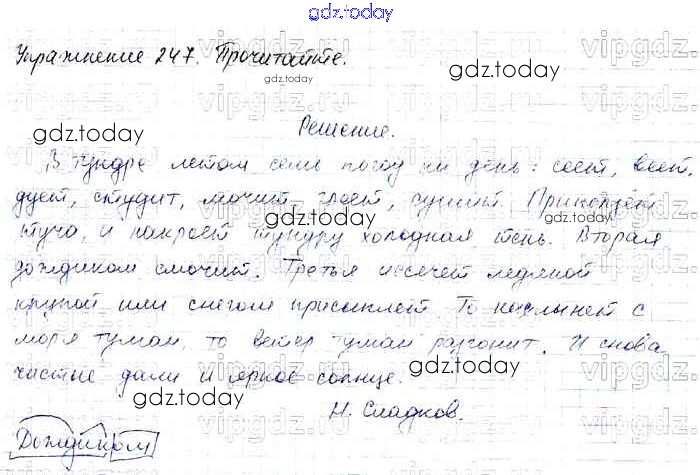 gdz.today
Упражнение 247. Прочитайте.
gdz.today
gdz.today
Решение.
В тундре летом семь погод на день: сеет, веет,
дует, студит, мочит, греет, сушит. Приползёт
gdz.today
туча, и накроет тундру холодная тень. Вторая
дождиком смочит. Третья иссечет ледяной
gdz.today
крупой или снегом присыплет. То нахлынет с
gdz.today
моря туман, то ветер туман разгонит. И снова
чистые дали и яркое солнце.
gdz.today
gdz.today
Н. Сладков.
Дождиком